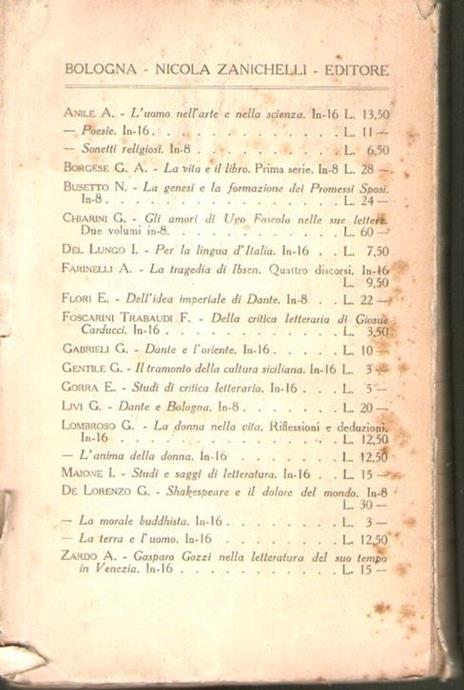 BOLOGNA - NICOLA ZANICHELLI - EDITORE
ANILE A. - L'uomo nell'arte e nella scienza. In-16 L. 13,50
— Poesie. In-16 . . . . . . . . . . . . . . L. 11 —
— Sonetti religiosi. In-8 . . . . . . . . . . L. 6,50
BORGESE G. A. - La vita e il libro. Prima serie. In-8 L. 28 —
BUSETTO N. - La genesi e la formazione dei Promessi Sposi.
In-8. . . . . . . . . . . . . . . . . L. 24 —
CHIARINI G. - Gli amori di Ugo Foscolo nelle sue lettere.
Due volumi in-8. . . . . . . . . . . . . L. 60 —
DEL LUNGO I. - Per la lingua d'Italia. In-16 . . L. 7,50
FARINELLI A. - La tragedia di Ibsen. Quattro discorsi. In-16
L. 9,50
FLORI E. - Dell'idea imperiale di Dante. In-8 . . L. 22 —
FOSCARINI TRABAUDI F. - Della critica letteraria di Giosue
Carducci. In-16 . . . . . . . . . . . . . L. 3,50
GABRIELI G. - Dante e l'oriente. In-16 . . . . . L. 10 —
GENTILE G. - Il tramonto della cultura siciliana. In-16 L. 3 —
GORRA E. - Studi di critica letteraria. In-16 . . . L. 5 —
LIVI G. - Dante e Bologna. In-8 . . . . . . . . L. 20 —
LOMBROSO G. - La donna nella vita. Riflessioni e deduzioni.
In-16 . . . . . . . . . . . . . . . . L. 12,50
— L'anima della donna. In-16 . . . . . . . . L. 12,50
MAIONE I. - Studi e saggi di letteratura. In-16 . . L. 15 —
DE LORENZO G. - Shakespeare e il dolore del mondo. In-8
L. 30 —
— La morale buddhista. In-16 . . . . . . . . . L. 3 —
— La terra e l'uomo. In-16 . . . . . . . . . L. 12,50
ZARDO A. - Gasparo Gozzi nella letteratura del suo tempo
in Venezia. In-16 . . . . . . . . . . . . L. 15 —